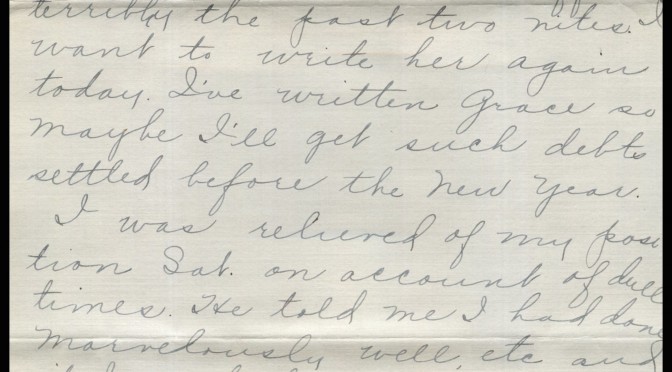 terribly the past two nites. I
want to write her again
today. I've written Grace so
maybe I'll get such debts
settled before the New Year.
I was relieved of my posi
tion Sat. on account of dull
times. He told me I had done
marvelously well, etc and